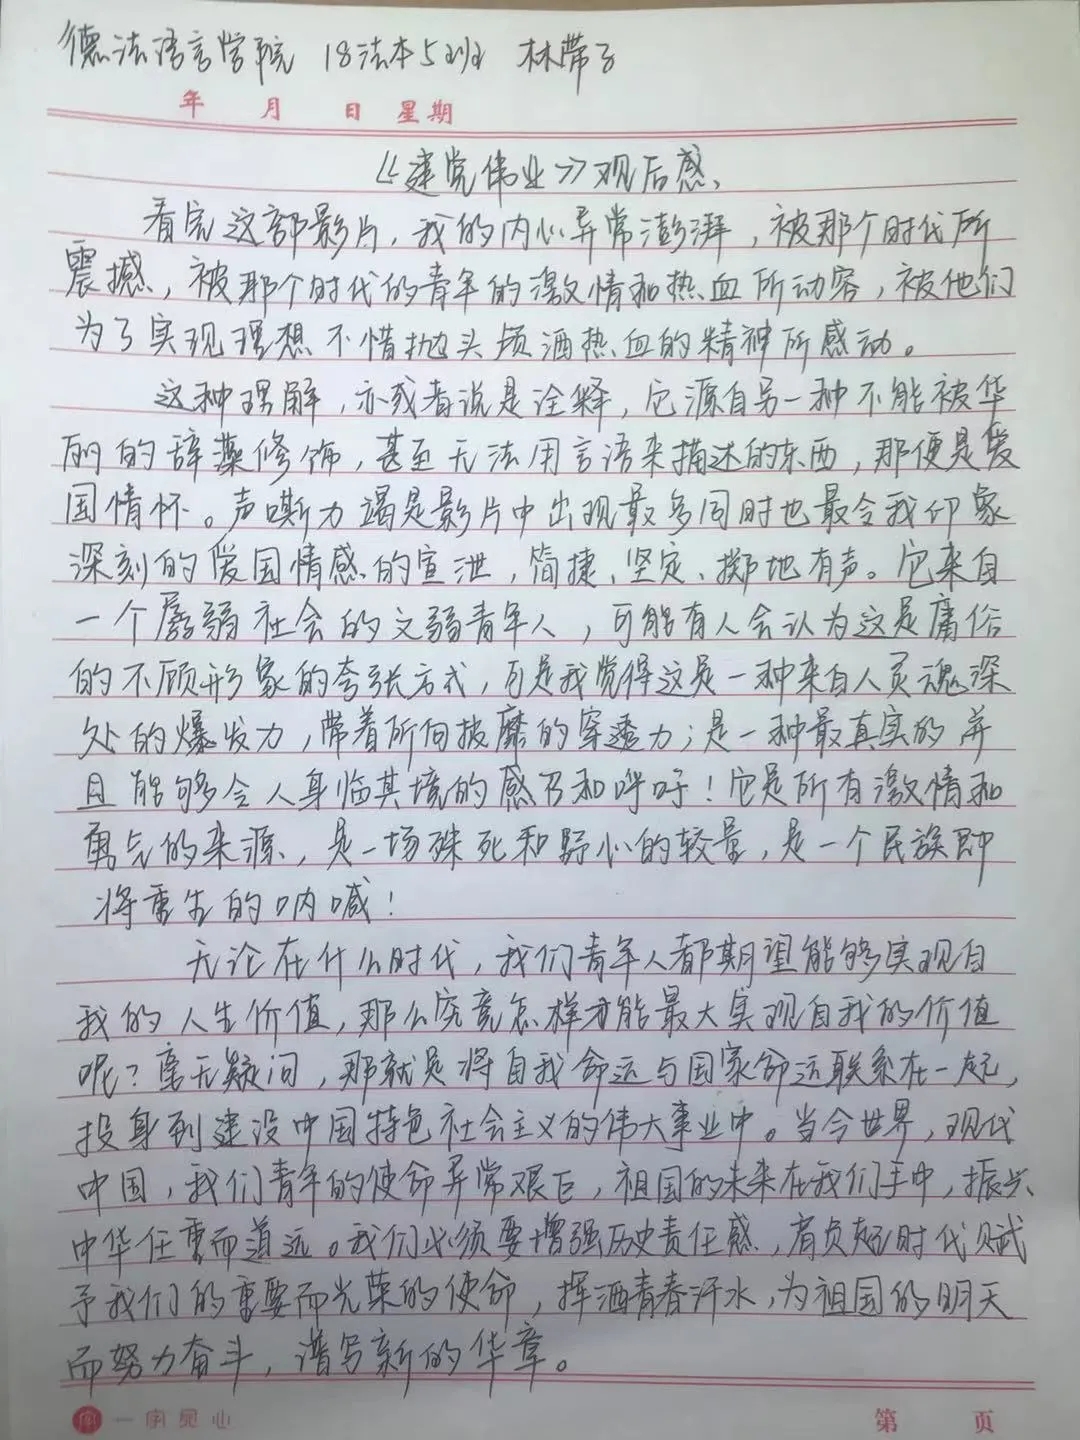 德法语言学院 18法本5班 林带子
年 月 日 星期
《建党伟业》观后感
看完这部影片，我的内心异常澎湃，被那个时代所
震撼，被那个时代的青年的激情和热血所动容，被他们
为了实现理想不惜抛头颅洒热血的精神所感动。
这种理解，亦或者说是诠释，它源自另一种不能被华
丽的辞藻修饰，甚至无法用言语来描述的东西，那便是爱
国情怀。声嘶力竭是影片中出现最多同时也最令我印象
深刻的爱国情感的宣泄，简捷、坚定、掷地有声。它来自
一个孱弱社会的文弱青年人，可能有人会认为这是庸俗
的不顾形象的夸张方式，可是我觉得这是一种来自人灵魂深
处的爆发力，带着所向披靡的穿透力；是一种最真实的并
且能够令人身临其境的感召和呼吁！它是所有激情和
勇气的来源，是一场殊死和野心的较量，是一个民族即
将重生的呐喊！
无论在什么时代，我们青年人都期望能够实现自
我的人生价值，那么究竟怎样才能最大实现自我的价值
呢？毫无疑问，那就是将自我命运与国家命运联系在一起，
投身到建设中国特色社会主义的伟大事业中。当今世界，现代
中国，我们青年的使命异常艰巨，祖国的未来在我们手中，振兴
中华任重而道远。我们必须要增强历史责任感，肩负起时代赋
予我们的重要而光荣的使命，挥洒青春汗水，为祖国的明天
而努力奋斗，谱写新的华章。
字 一字见心
第 页